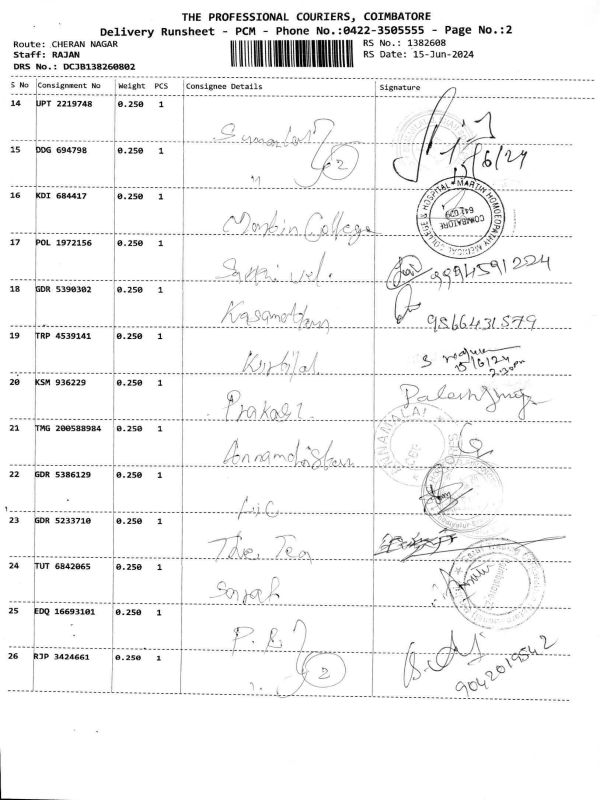 THE PROFESSIONAL COURIERS, COIMBATORE
Delivery Runsheet - PCM - Phone No.:0422-3505555 - Page No.:2
Route: CHERAN NAGAR
RS No.: 1382608
Staff: RAJAN
RS Date: 15-Jun-2024
DRS No.: DCJB138260802
S No Consignment No Weight PCS Consignee Details Signature
14 UPT 2219748 0.250 1
15 DDG 694798 0.250 1 " 2 15/6/24
16 KDI 684417 0.250 1 College
COLLEGE & HOSPITAL * MARTIN HOMOEOPATHY MEDICAL
COIMBATORE
641 029
17 POL 1972156 0.250 1 Sakthi vel. 9994591224
18 GDR 5390302 0.250 1 9566431579
19 TRP 4539141 0.250 1 15/6/24
2:30pm
20 KSM 936229 0.250 1 Prakash
21 TMG 200588984 0.250 1
ANNAMALAI
22 GDR 5386129 0.250 1 LIC
23 GDR 5233710 0.250 1 The Tea
24 TUT 6842065 0.250 1
25 EDQ 16693101 0.250 1 P.R
26 RJP 3424661 0.250 1 2 9042019542